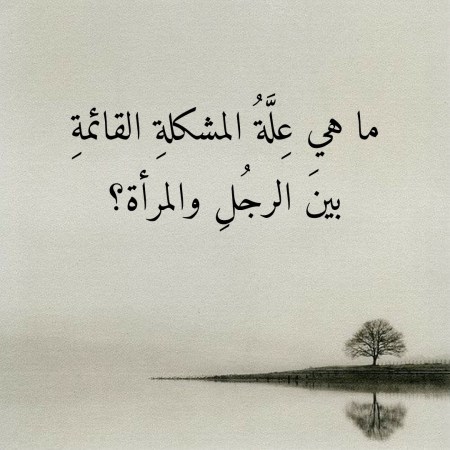 ما هي عِلَّةُ المشكلةِ القائمةِ
بينَ الرجُلِ والمرأة؟